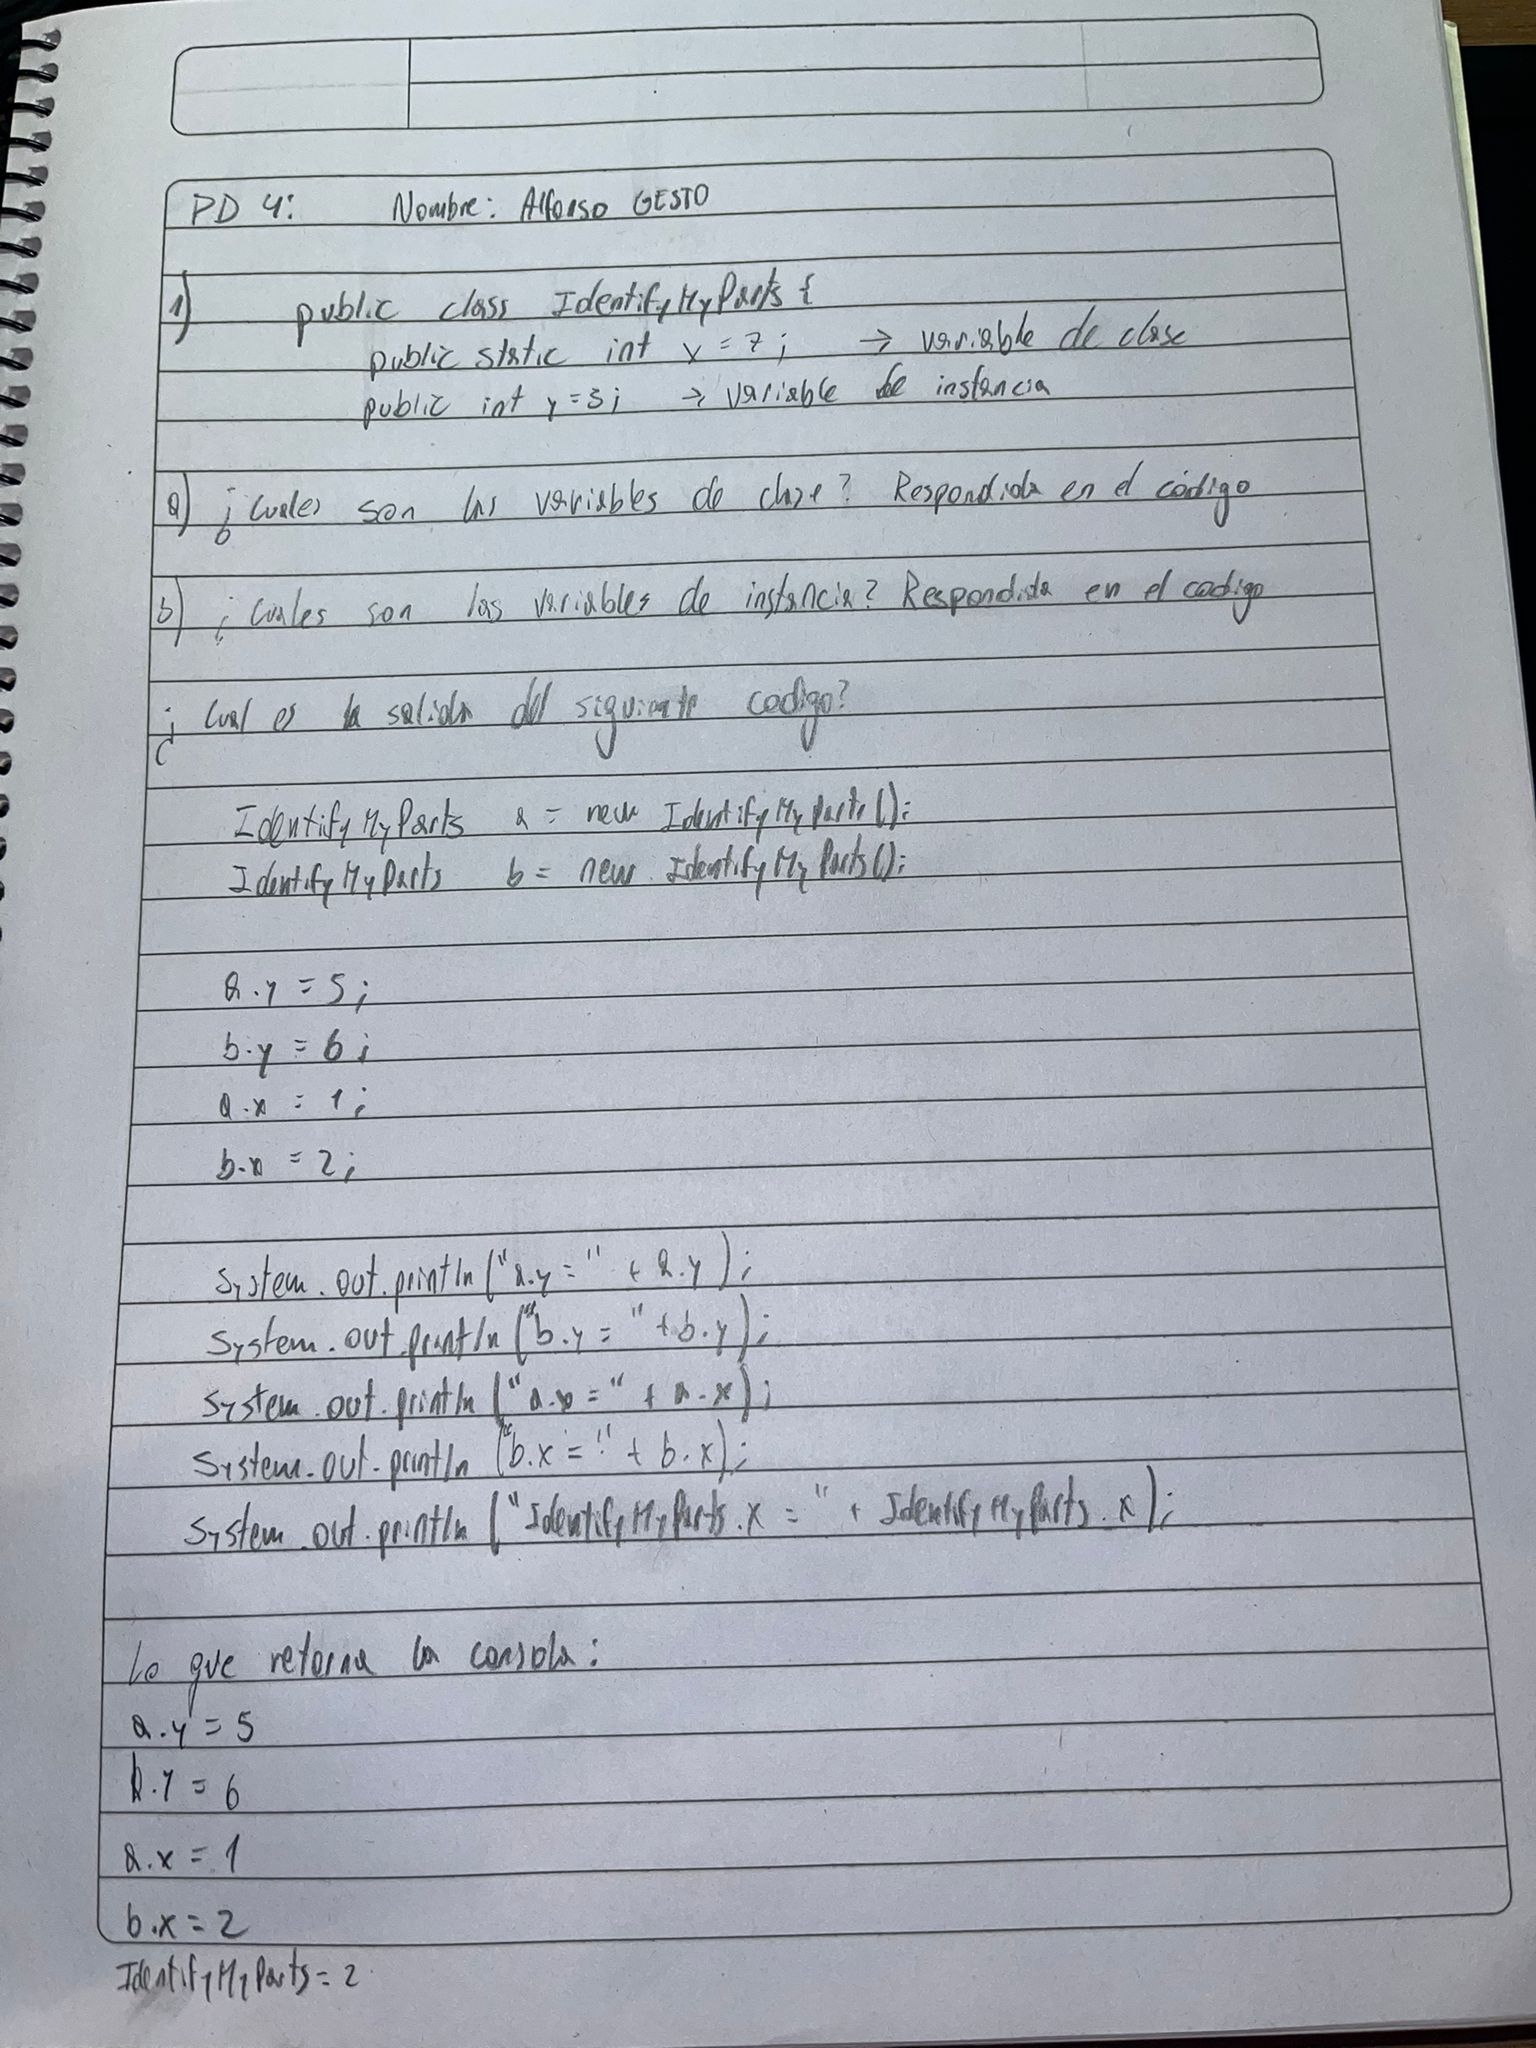 PD 4: Nombre: Alfonso GESTO
1) public class IdentifyMyParts {
public static int x = 7; → variable de clase
public int y = 3; → variable de instancia
a) ¿Cuales son las variables de clase? Respondida en el código
b) ¿Cuales son las variables de instancia? Respondida en el codigo
¿Cual es la salida del siguiente codigo?
IdentifyMyParts a = new IdentifyMyParts();
IdentifyMyParts b = new IdentifyMyParts();
a.y = 5;
b.y = 6;
a.x = 1;
b.x = 2;
System.out.println("a.y = " + a.y);
System.out.println("b.y = " + b.y);
System.out.println("a.x = " + a.x);
System.out.println("b.x = " + b.x);
System.out.println("IdentifyMyParts.x = " + IdentifyMyParts.x);
Lo que retorna la consola:
a.y = 5
b.y = 6
a.x = 1
b.x = 2
IdentifyMyParts = 2